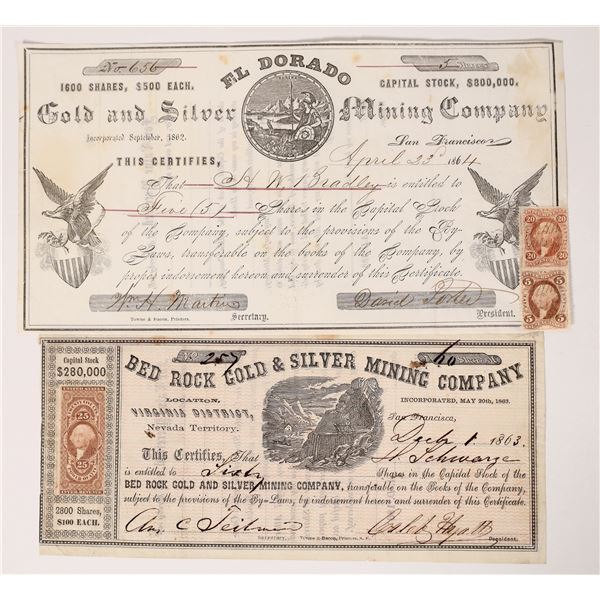 No. 656
5 Shares
EL DORADO
1600 SHARES, $500 EACH.
CAPITAL STOCK, $800,000.
Gold and Silver Mining Company
Incorporated September, 1862.
San Francisco
April 23d 1864
THIS CERTIFIES,
That A. W. Bradley is entitled to
Five (5) Shares in the Capital Stock
of the Company, subject to the provisions of the By-
Laws, transferable on the books of the Company, by
proper indorsement hereon and surrender of this Certificate.
Wm H. Martin
David
Secretary.
President.
Towne & Bacon, Printers.
20 20
5 5
No. 257
60
Capital Stock
$280,000
BED ROCK GOLD & SILVER MINING COMPANY
LOCATION,
INCORPORATED, MAY 20th, 1863.
VIRGINIA DISTRICT,
Nevada Territory.
San Francisco,
Decbr 1. 1863
This Certifies, That
H. Schwarze
is entitled to Sixty
Shares in the Capital Stock of the
BED ROCK GOLD AND SILVER MINING COMPANY, transferable on the Books of the Company,
subject to the provisions of the By-Laws, by indorsement hereon and surrender of this Certificate.
25 25
2800 Shares,
$100 EACH.
Caleb Hyatt
Secretary.
Towne & Bacon, Printers, S. F.
President.